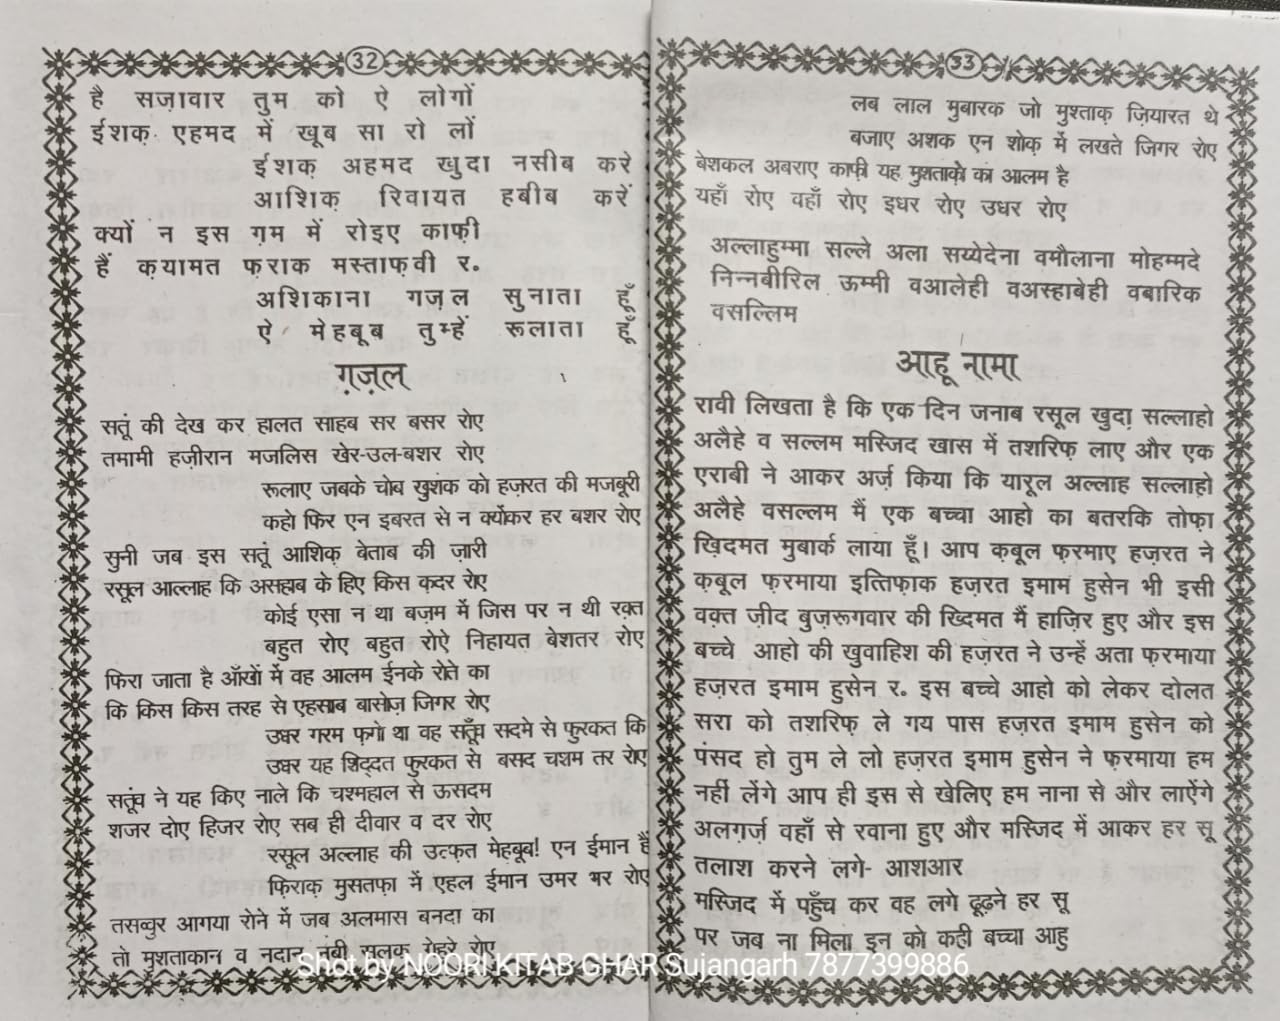 32
है सज़ावार तुम को ऐ लोगों
ईशक़ एहमद में खूब सा रो लों
ईशक़ अहमद खुदा नसीब करे
आशिक़ रिवायत हबीब करें
क्यों न इस ग़म में रोइए काफ़ी
हैं क़यामत फ़राक मस्ताफ़वी र.
अशिकाना गज़ल सुनाता हूँ
ऐ मेहबूब तुम्हें रूलाता हूँ
ग़ज़ल
सतूं की देख कर हालत साहब सर बसर रोए
तमामी हज़ीरान मजलिस खेर-उल-बशर रोए
रूलाए जबके चोब खुशक को हज़रत की मजबूरी
कहो फिर एन इबरत से न क्योंकर हर बशर रोए
सुनी जब इस सतूं आशिक़ बेताब की ज़ारी
रसूल आल्लाह कि असहाब के हिए किस क़दर रोए
कोई एसा न था बज़म में जिस पर न थी रक़्त
बहुत रोए बहुत रोऐ निहायत बेशतर रोए
फिरा जाता है आँखों में वह आलम ईनके रोते का
कि किस किस तरह से एहसाब बासोज़ जिगर रोए
उधर गरम फ़गो था वह सतूँ सदमे से फुरकत कि
उधर यह शिद्दत फुरकत से बसद चशम तर रोए
सतूंव ने यह किए नाले कि चश्महाल से ऊसदम
शजर दोए हिजर रोए सब ही दीवार व दर रोए
रसूल अल्लाह की उत्फ़त मेहबूब! एन ईमान है
फ़िराक़ मुसतफ़ा में एहल ईमान उमर भर रोए
तसव्वुर आगया रोने में जब अलमास बनदा का
तो मुशताकान व नदान नबी सलक गेहरे रोए
33
लब लाल मुबारक जो मुश्ताक़ ज़ियारत थे
बजाए अशक एन शोक़ में लखते जिगर रोए
बेशकल अबराए काफी यह मुशताक़ो का आलम है
यहाँ रोए वहाँ रोए इधर रोए उधर रोए
अल्लाहुम्मा सल्ले अला सय्येदेना वमौलाना मोहम्मदे
निन्नबीरिल ऊम्मी वआलेही वअस्हाबेही वबारिक
वसल्लिम
आहू नामा
रावी लिखता है कि एक दिन जनाब रसूल खुदा़ सल्लाहो
अलैहे व सल्लम मस्जिद खास में तशरिफ़ लाए और एक
एराबी ने आकर अर्ज़ किया कि यारूल अल्लाह सल्लाहो़
अलैहे वसल्लम मैं एक बच्चा आहो का बतरकि तोफ़ा
खि़दमत मुबार्क लाया हूँ। आप क़बूल फ़रमाए हज़रत ने
क़बूल फ़रमाया इत्तिफ़ाक़ हज़रत इमाम हुसेन भी इसी
वक़्त जी़द बुज़रूगवार की ख्दिमत मैं हाज़िर हुए और इस
बच्चे आहो की खुवाहिश की हज़रत ने उन्हें अता फ़रमाया
हज़रत इमाम हुसेन र. इस बच्चे आहो को लेकर दोलत
सरा को तशरिफ़ ले गय पास हज़रत इमाम हुसेन को
पंसद हो तुम ले लो हज़रत इमाम हुसेन ने फरमाया हम
नहीं लेंगे आप ही इस से खेलिए हम नाना से और लाऐंगे
अलग़र्ज़ वहाँ से रवाना हुए और मस्जिद में आकर हर सू
तलाश करने लगे- आशआर
मस्जिद में पहुँच कर वह लगे ढूढ़ने हर सू
पर जब ना मिला इन को कही बच्चा आहु
Shot by NOORI KITAB GHAR Sujangarh 7877399886